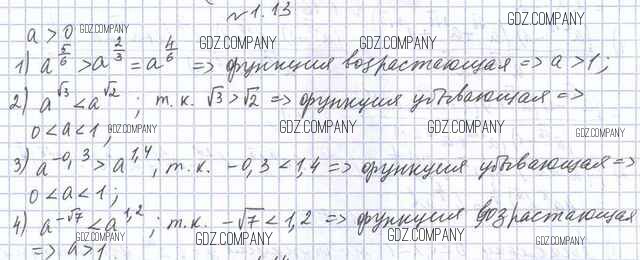 № 1.13
a > 0 GDZ.COMPANY GDZ.COMPANY
1) a^{5/6} > a^{2/3} = a^{4/6} => функция возрастающая => a > 1;
GDZ.COMPANY GDZ.COMPANY
2) a^{√3} < a^{√2} ; т.к. √3 > √2 => функция убывающая =>
0 < a < 1 ; GDZ.COMPANY GDZ.COMPANY GDZ.COMPANY GDZ.COMPANY
3) a^{-0,3} > a^{1,4} ; т.к. -0,3 < 1,4 => функция убывающая =>
0 < a < 1 ;
GDZ.COMPANY GDZ.COMPANY
4) a^{-√7} < a^{1,2} ; т.к. -√7 < 1,2 => функция возрастающая
=> a > 1 GDZ.COMPANY GDZ.COMPANY GDZ.COMPANY GDZ.COMPANY